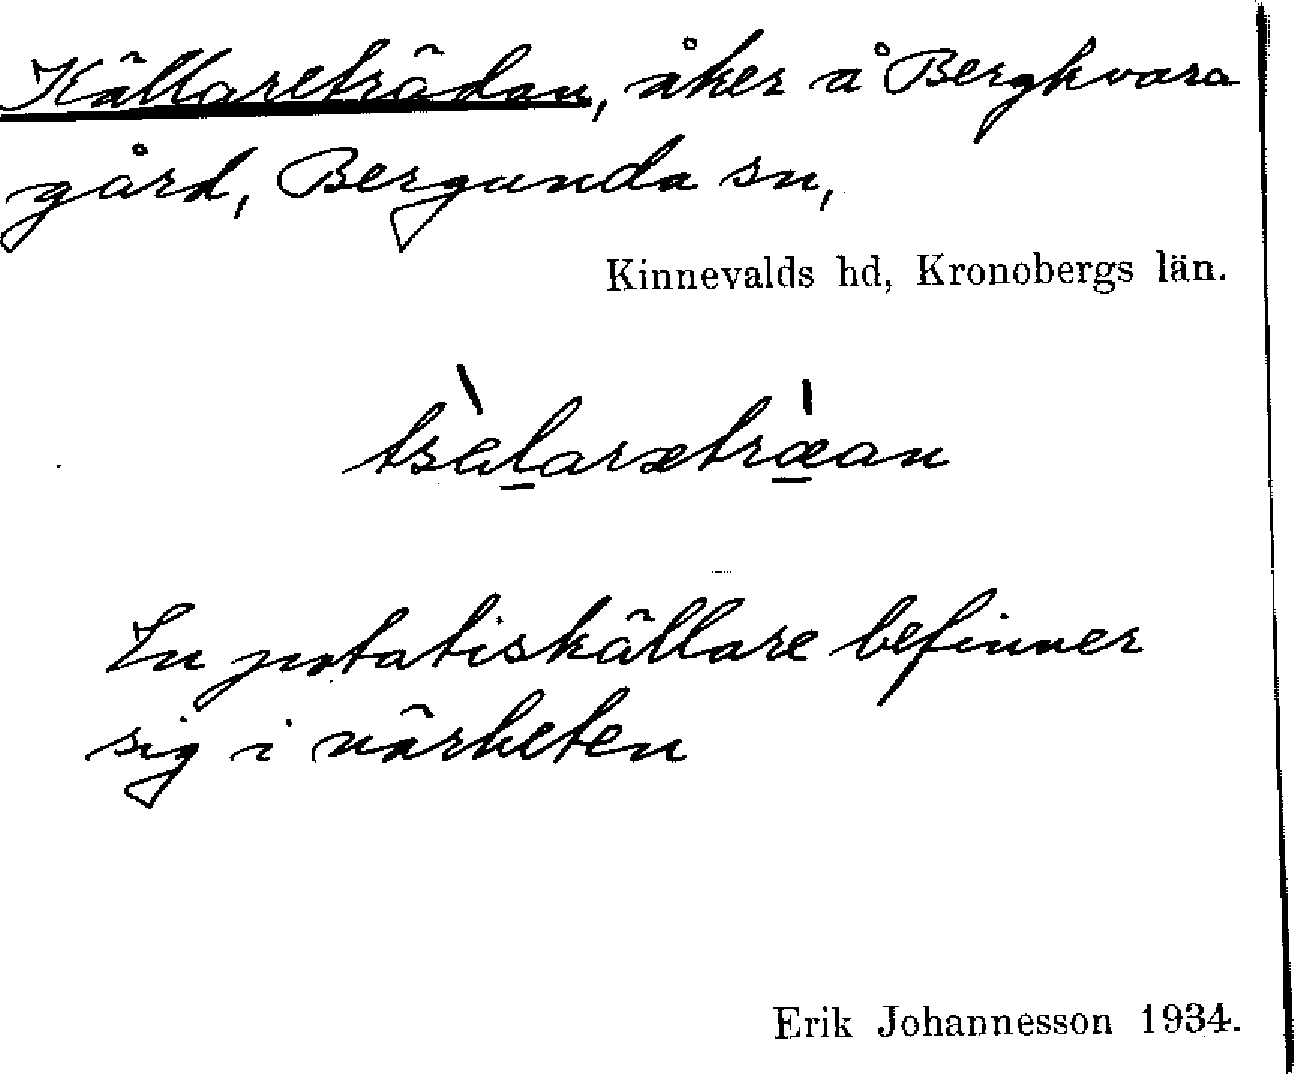 Källareträdan, åker å Bergkvara
gård, Bergunda sn,
Kinnevalds hd, Kronobergs län.
En potatiskällare befinner
sig i närheten
Erik Johannesson 1934.